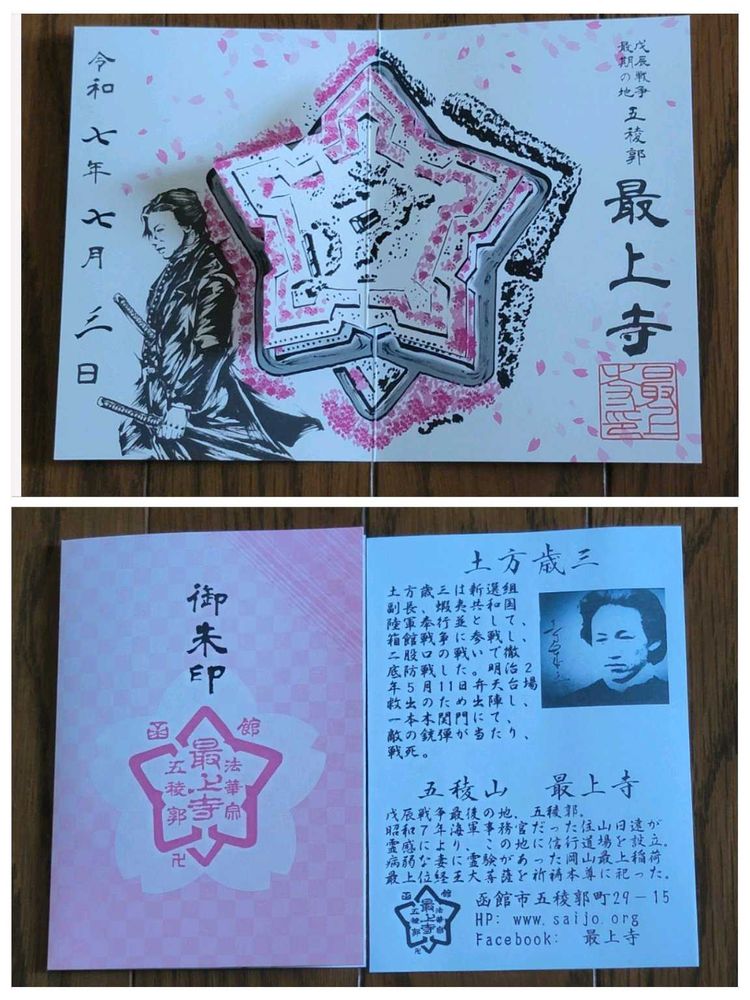 戊辰戦争
最期の地
五稜郭
最上寺
令和七年七月三日
御朱印
函館
法華宗
最上寺
五稜郭
卍
土方歳三
土方歳三は新選組
副長、蝦夷共和国
陸軍奉行並として、
箱館戦争に参戦し、
二股口の戦いで徹
底防戦した。明治2
年5月11日弁天台場
救出のため出陣し、
一本木関門にて、
敵の銃弾が当たり、
戦死。
五稜山 最上寺
戊辰戦争最後の地、五稜郭。
昭和7年海軍事務官だった住山日遠が
霊感により、この地に信行道場を設立。
病弱な妻に霊験があった岡山最上稲荷
最上位経王大菩薩を祈祷本尊に祀った。
函館
法華宗
最上寺
五稜郭
卍
函館市五稜郭町29-15
HP: www.saijo.org
Facebook: 最上寺